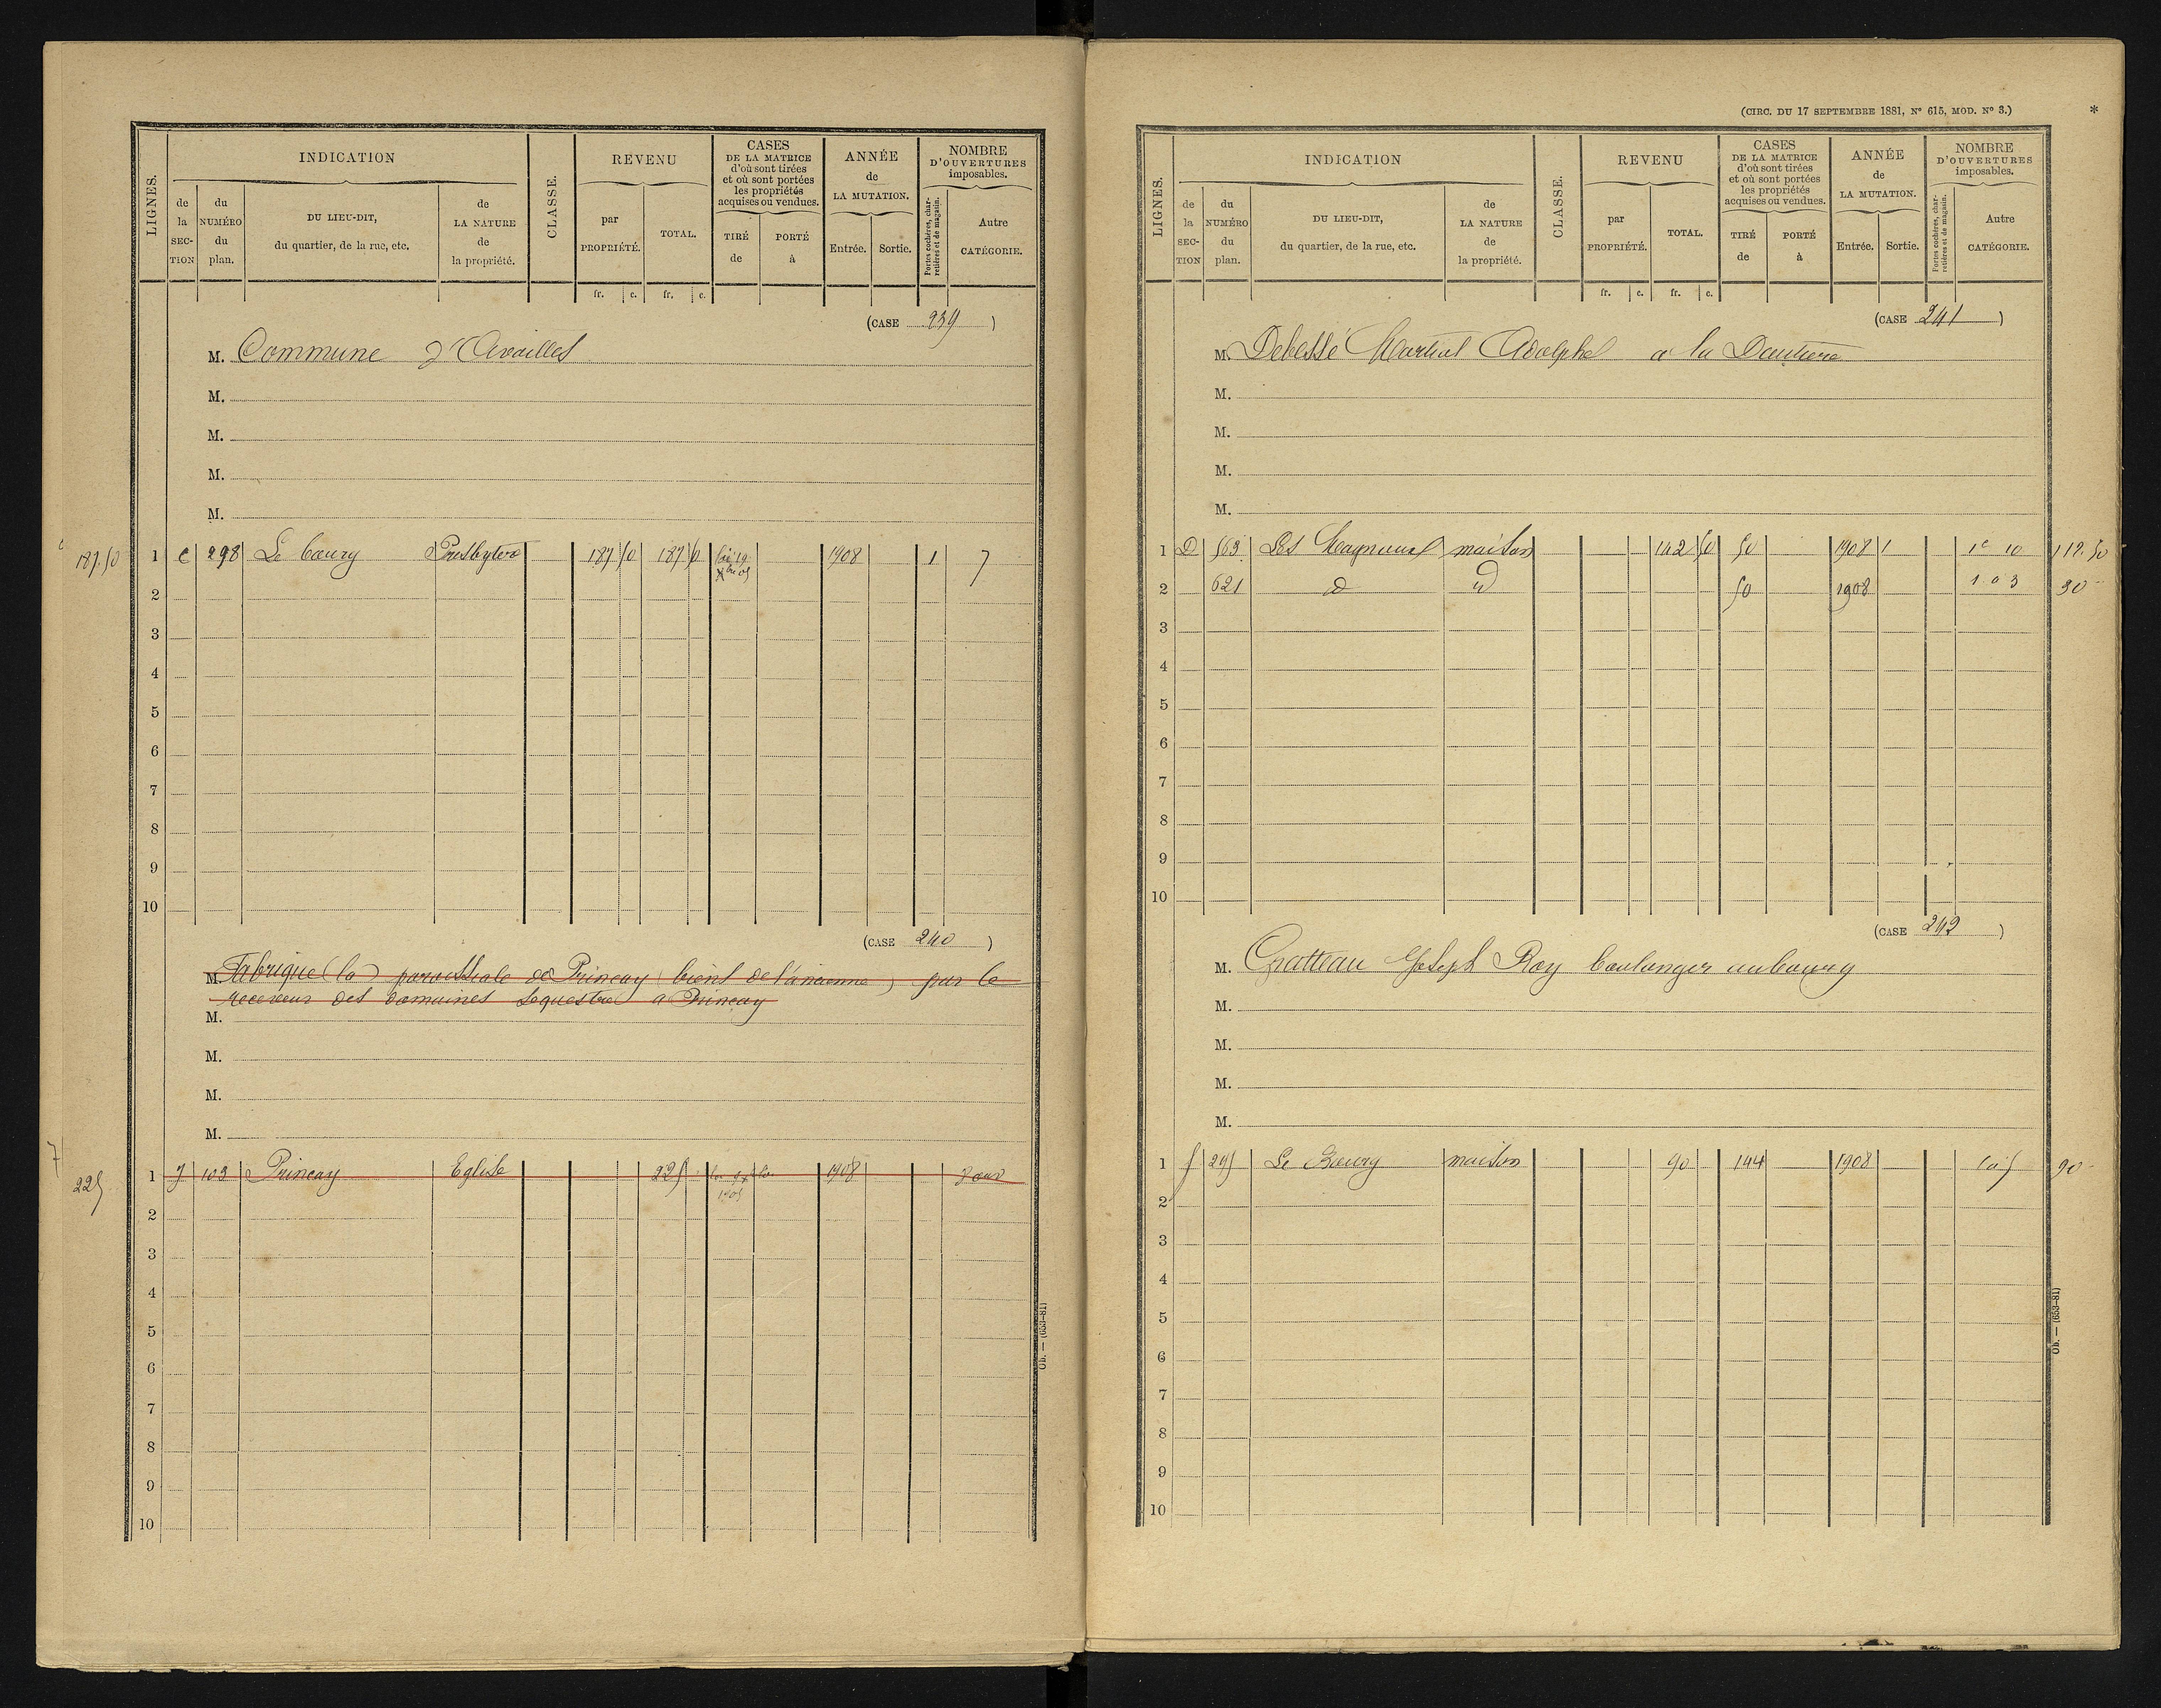 LIGNES.
INDICATION
de la SECTION
du NUMÉRO du plan.
DU LIEU-DIT, du quartier, de la rue, etc.
de LA NATURE de la propriété.
CLASSE.
REVENU
par PROPRIÉTÉ.
TOTAL.
CASES DE LA MATRICE d'où sont tirées et où sont portées les propriétés acquises ou vendues.
TIRÉ de
PORTÉ à
ANNÉE de LA MUTATION.
Entrée.
Sortie.
NOMBRE D'OUVERTURES imposables.
Portes cochères, charretières et de magasin.
Autre CATÉGORIE.
fr. c. fr. c.
(CASE 239 )
M. Commune d'Availles
M.
M.
M.
M.
187.50 1 C 298 Le bourg Presbytère 187 50 187 50 1908 1 7
2
3
4
5
6
7
8
9
10
(CASE 240 )
M. Fabrique (la) paroissiale de Prinçay (biens de l'ancienne) par le
receveur des domaines séquestre à Prinçay
M.
M.
M.
M.
7
225 1 J 103 Prinçay Eglise 225 1908
2
3
4
5
6
7
8
9
10
Ob. — (653-81)
(CIRC. DU 17 SEPTEMBRE 1881, N° 615, MOD. N° 3.) *
LIGNES.
INDICATION
de la SECTION
du NUMÉRO du plan.
DU LIEU-DIT, du quartier, de la rue, etc.
de LA NATURE de la propriété.
CLASSE.
REVENU
par PROPRIÉTÉ.
TOTAL.
CASES DE LA MATRICE d'où sont tirées et où sont portées les propriétés acquises ou vendues.
TIRÉ de
PORTÉ à
ANNÉE de LA MUTATION.
Entrée.
Sortie.
NOMBRE D'OUVERTURES imposables.
Portes cochères, charretières et de magasin.
Autre CATÉGORIE.
fr. c. fr. c.
(CASE 241 )
M. Debessé Martial Adolphe à la
M.
M.
M.
M.
1 D 563 Les maison 142 50 50 1908 1 112.50
2 621 d d 50 1908 1 à 3 30
3
4
5
6
7
8
9
10
(CASE 242 )
M. Gratteau Joseph Roy boulanger au bourg
M.
M.
M.
M.
1 295 Le Bourg maison 90 144 1908 1 à 5 90
2
3
4
5
6
7
8
9
10
Ob. — (653-81)